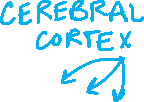 CEREBRAL
CORTEX